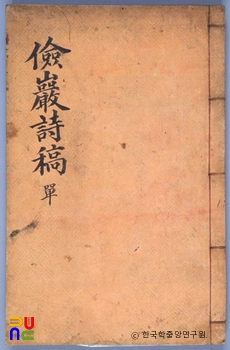 儉巖詩稿
單
ⓒ 한국학중앙연구원